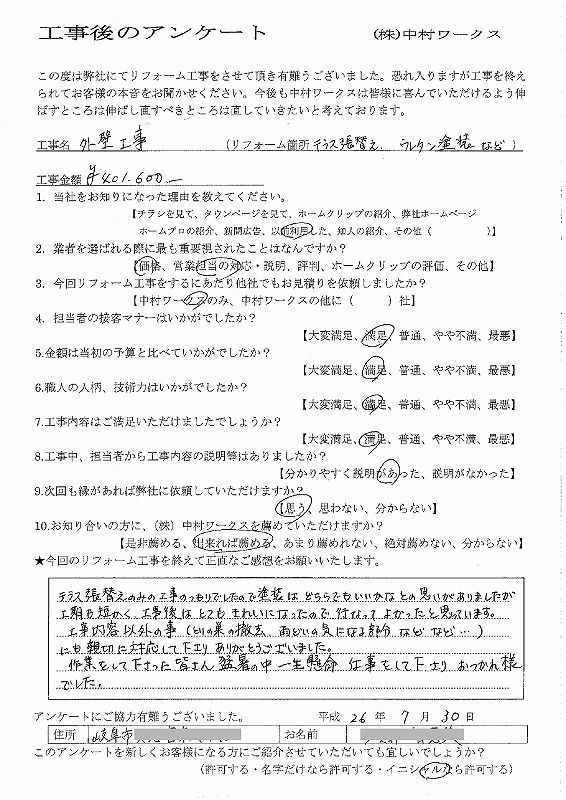 工事後のアンケート (株)中村ワークス
この度は弊社にてリフォーム工事をさせて頂き有難うございました。恐れ入りますが工事を終え
られてお客様の本音をお聞かせください。今後も中村ワークスは皆様に喜んでいただけるよう伸
ばすところは伸ばし直すべきところは直していきたいと考えております。
工事名 外壁工事 (リフォーム箇所 テラス張替え. ウレタン塗装 など)
工事金額 ¥401.600.―
1. 当社をお知りになった理由を教えてください。
【チラシを見て、タウンページを見て、ホームクリップの紹介、弊社ホームページ
ホームプロの紹介、新聞広告、以前利用した、知人の紹介、その他( )】
2. 業者を選ばれる際に最も重要視されたことはなんですか?
【価格、営業担当の対応・説明、評判、ホームクリップの評価、その他】
3. 今回リフォーム工事をするにあたり他社でもお見積りを依頼しましたか?
【中村ワークスのみ、中村ワークスの他に( )社】
4. 担当者の接客マナーはいかがでしたか?
【大変満足、満足、普通、やや不満、最悪】
5.金額は当初の予算と比べていかがでしたか?
【大変満足、満足、普通、やや不満、最悪】
6.職人の人柄、技術力はいかがでしたか?
【大変満足、満足、普通、やや不満、最悪】
7.工事内容はご満足いただけましたでしょうか?
【大変満足、満足、普通、やや不満、最悪】
8.工事中、担当者から工事内容の説明等はありましたか?
【分かりやすく説明があった、説明がなかった】
9.次回も縁があれば弊社に依頼していただけますか?
【思う、思わない、分からない】
10.お知り合いの方に、(株)中村ワークスを薦めていただけますか?
【是非薦める、出来れば薦める、あまり薦めれない、絶対薦めない、分からない】
★今回のリフォーム工事を終えて正直なご感想をお願いいたします。
テラス張替えのみの工事のつもりでしたので塗装はどちらでもいいかなとの思いがありましたが
工期も短かく、工事後はとてもきれいになったので行なってよかったと思っています。
工事内容以外の事(とりの巣の撤去 雨どいの気になる部分などなど…)
にも親切に対応して下さりありがとうございました。
作業をして下さった皆さん 猛暑の中 一生懸命 仕事をして下さりおつかれ様
でした。
アンケートにご協力有難うございました。 平成 26 年 7 月 30 日
住所 岐阜市 お名前
このアンケートを新しくお客様になる方にご紹介させていただいても宜しいでしょうか?
(許可する・名字だけなら許可する・イニシャルなら許可する)